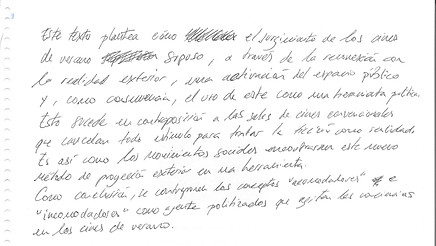 Este texto plantea cómo el surgimiento de los cines
de verano supuso, a través de la reconexión con
la realidad exterior, una activación del espacio público
y, como consecuencia, el uso de este como una herramienta política.
Esto sucede en contraposición a las salas de cines convencionales
que cancelan todo estímulo para tratar la ficción como realidad.
Es así como los movimientos sociales encontraron este nuevo
método de proyección exterior en una herramienta.
Como conclusión, se contraponen los conceptos "acomodadores" e
"incomodadores" como agentes politizados que agitan las conciencias
en los cines de verano.